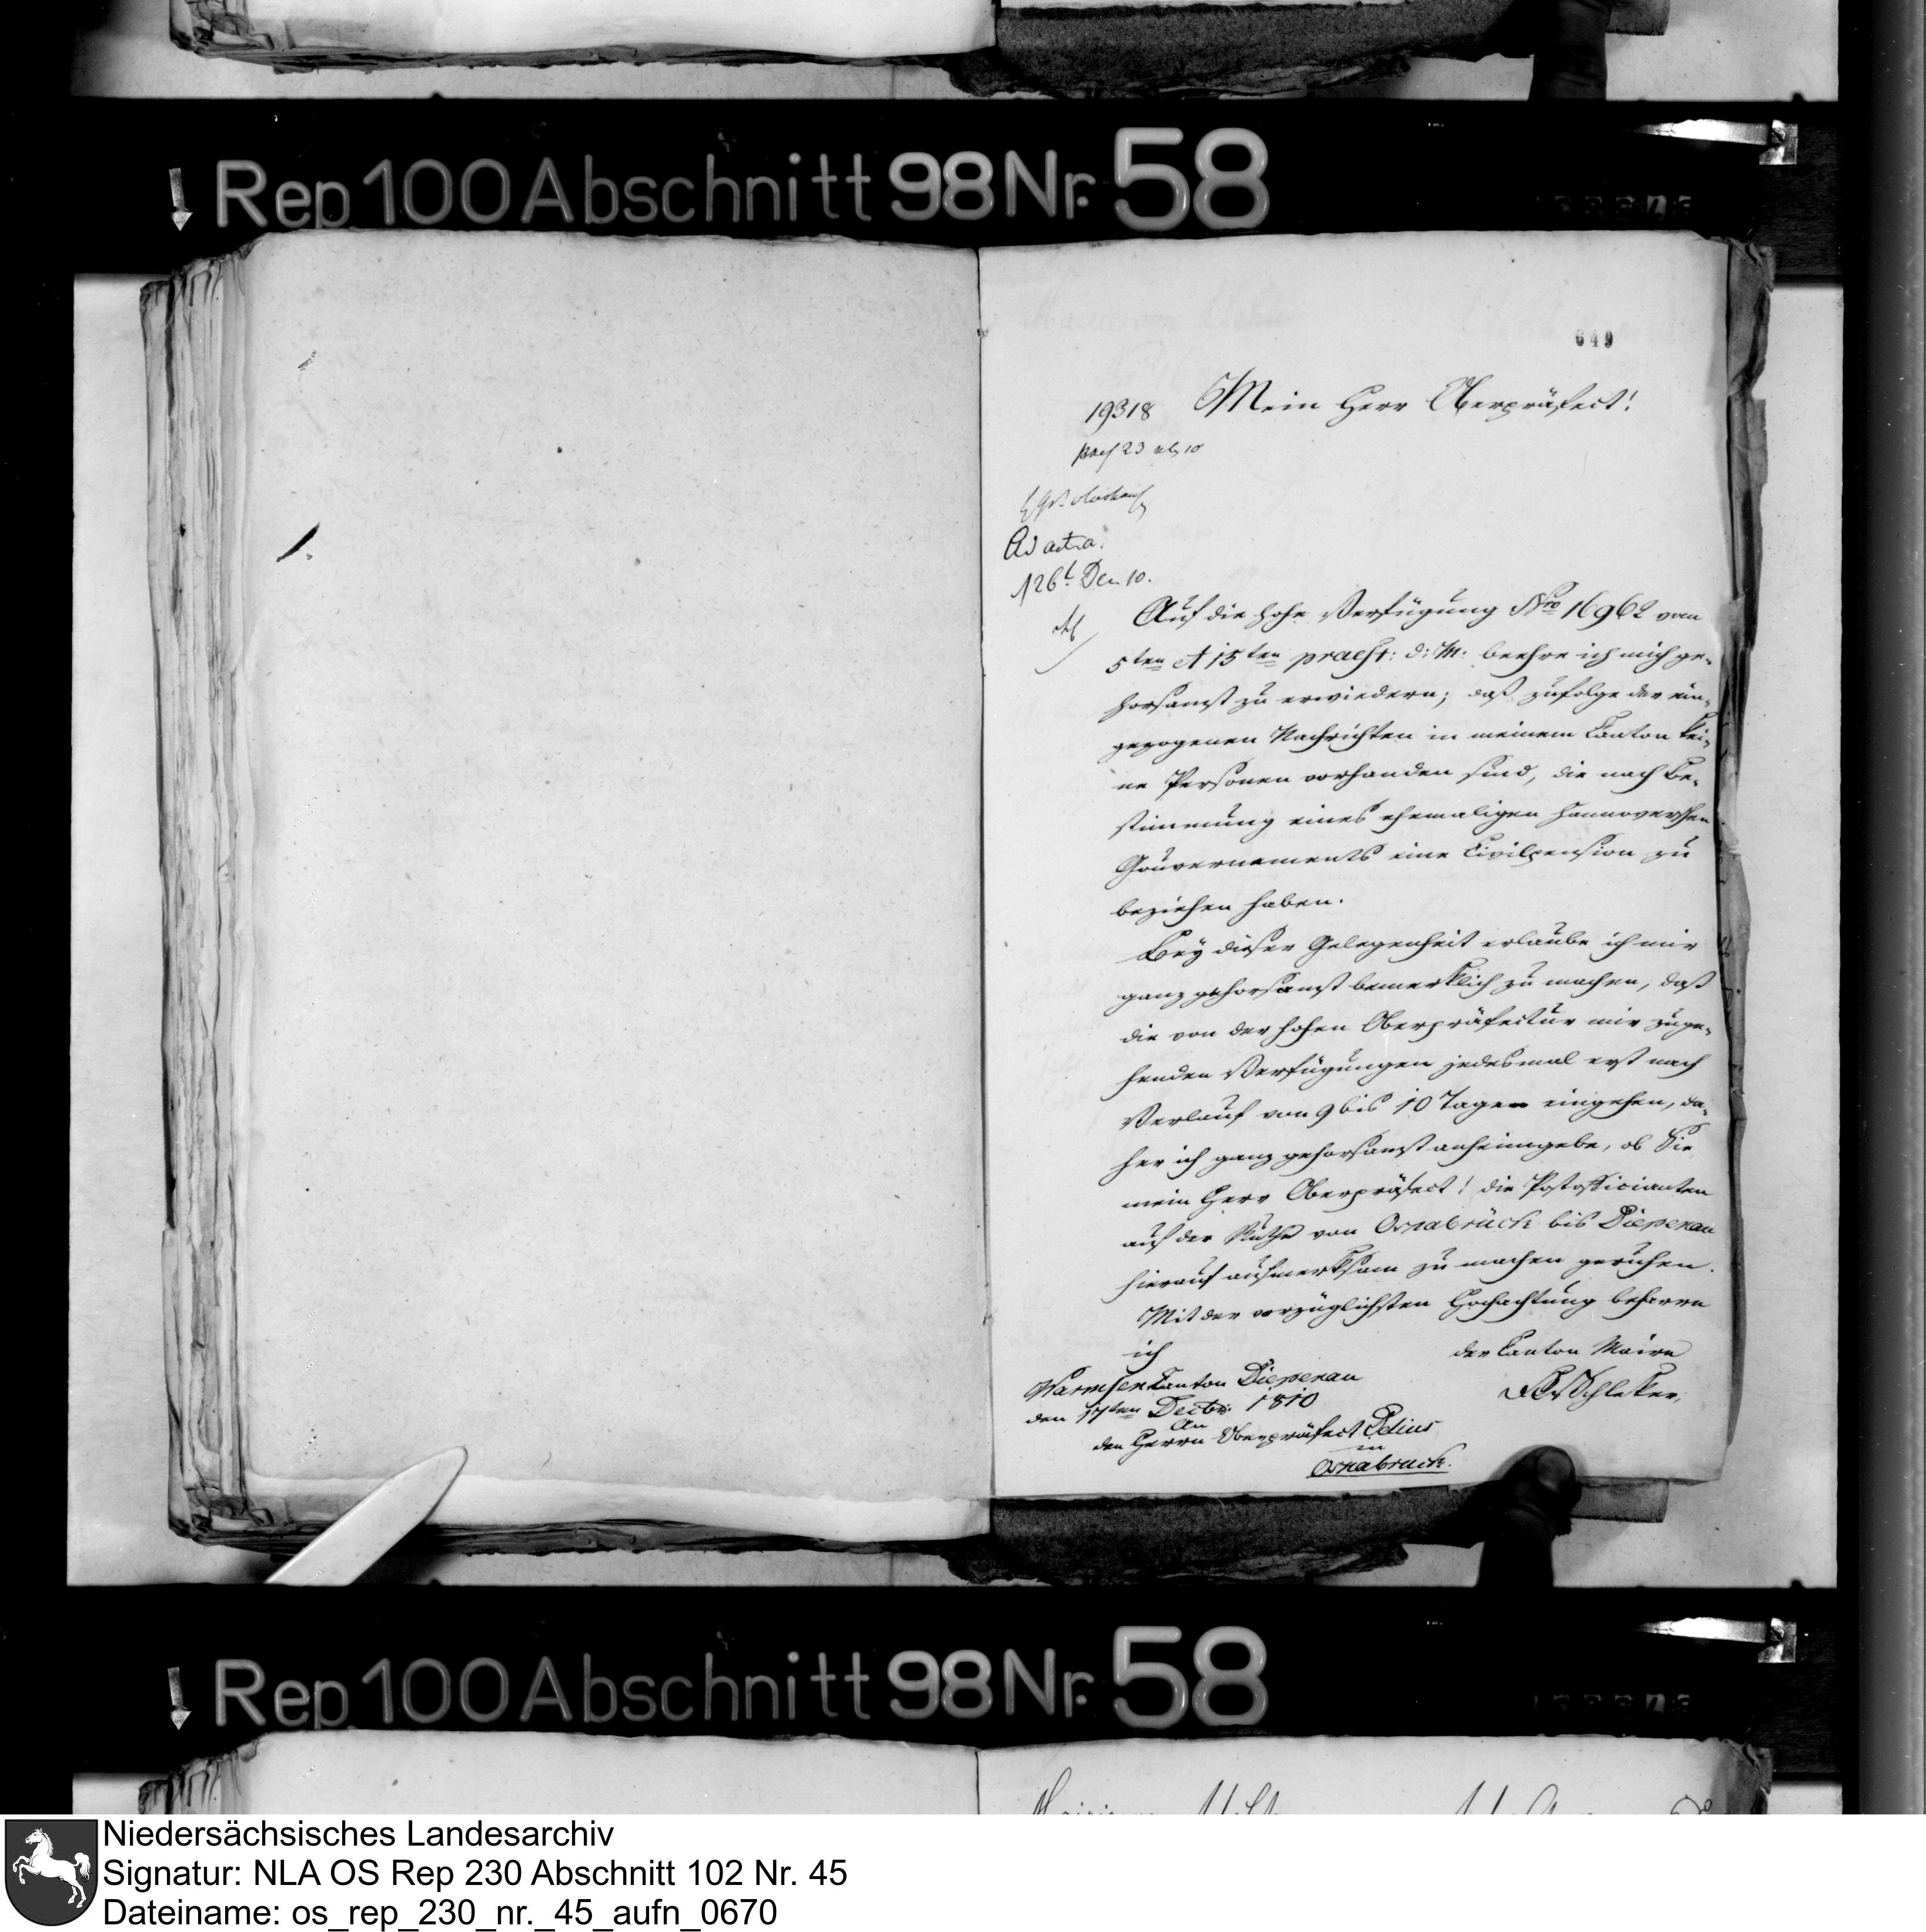 Rep 100 Abschnitt 98 Nr. 58
649
19318 Mein Herr Oberpräfect!
Ad acta.
26t Dec 10.
Auf die hohe Verfügung Nro 16962 vom
5ten et 15ten praest: d: M: beehre ich mich ge-
horsamst zu erwiedern; daß zufolge der ein-
gezogenen Nachrichten in meinem Canton kei-
ne Personen vorhanden sind, die nach Be-
stimmung eines ehemaligen Hannoverschen
Gouvernements eine Civilpension zu
beziehen haben.
Bey dieser Gelegenheit erlaube ich mir
ganz gehorsamst bemerklich zu machen, daß
die von der hohen Oberpräfectur mir zuge-
henden Verfügungen jedesmal erst nach
Verlauf von 9 bis 10 Tagen eingehen, da-
her ich ganz gehorsamst anheimgebe, ob Sie
mein Herr Oberpräfect! die Postofficianten
auf der Ruthe von Osnabrück bis Diepenau
hierauf aufmerksam zu machen geruhen.
Mit der vorzüglichsten Hochachtung beharre
ich
der Canton Maire
Warmsen Canton Diepenau
den 17ten Decbr. 1810
An
den Herrn Oberpräfect Delius
in
Osnabruck.
Rep 100 Abschnitt 98 Nr. 58
Niedersächsisches Landesarchiv
Signatur: NLA OS Rep 230 Abschnitt 102 Nr. 45
Dateiname: os_rep_230_nr._45_aufn_0670